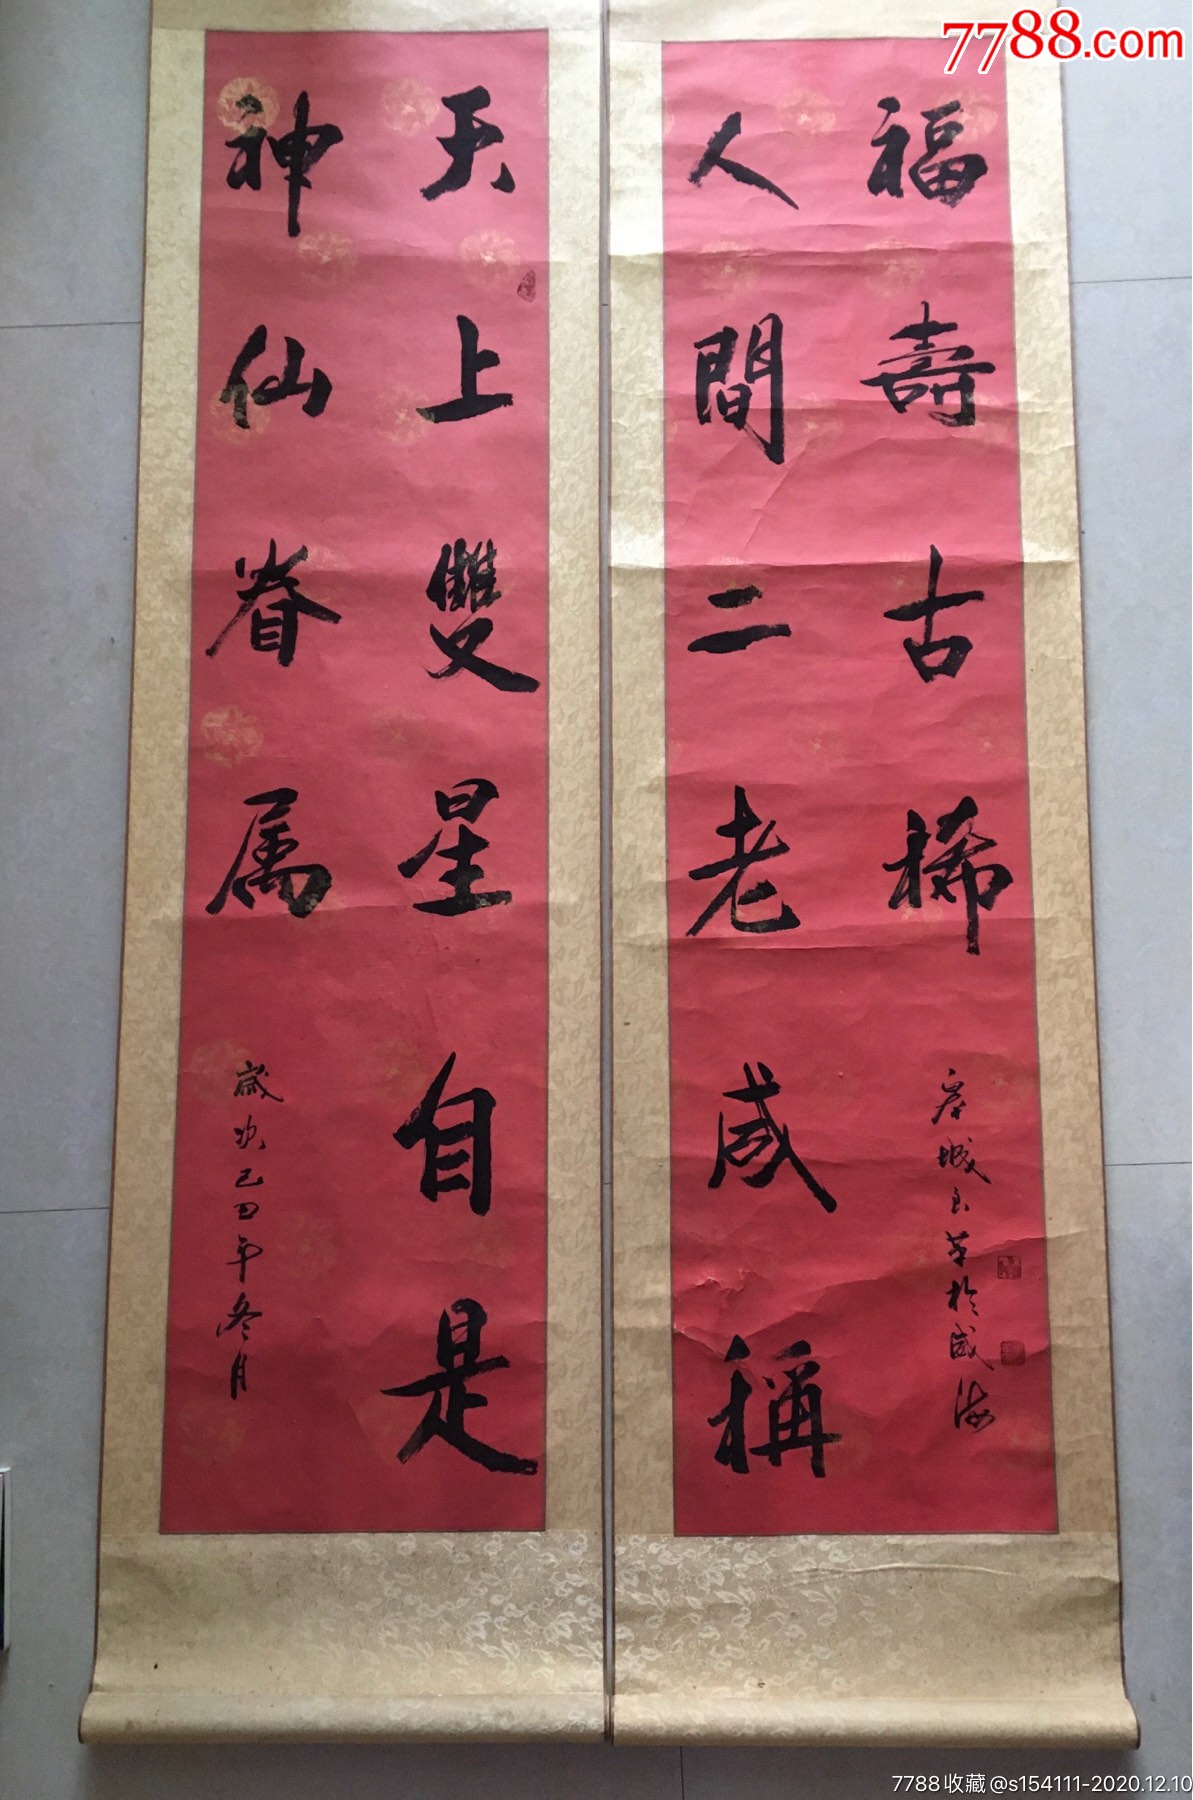 7788.com
天上雙星自是
神仙眷属
歲次己丑年冬月
人間二老咸稱
福壽古稀
城 於威海
7788收藏@s154111-2020.12.10